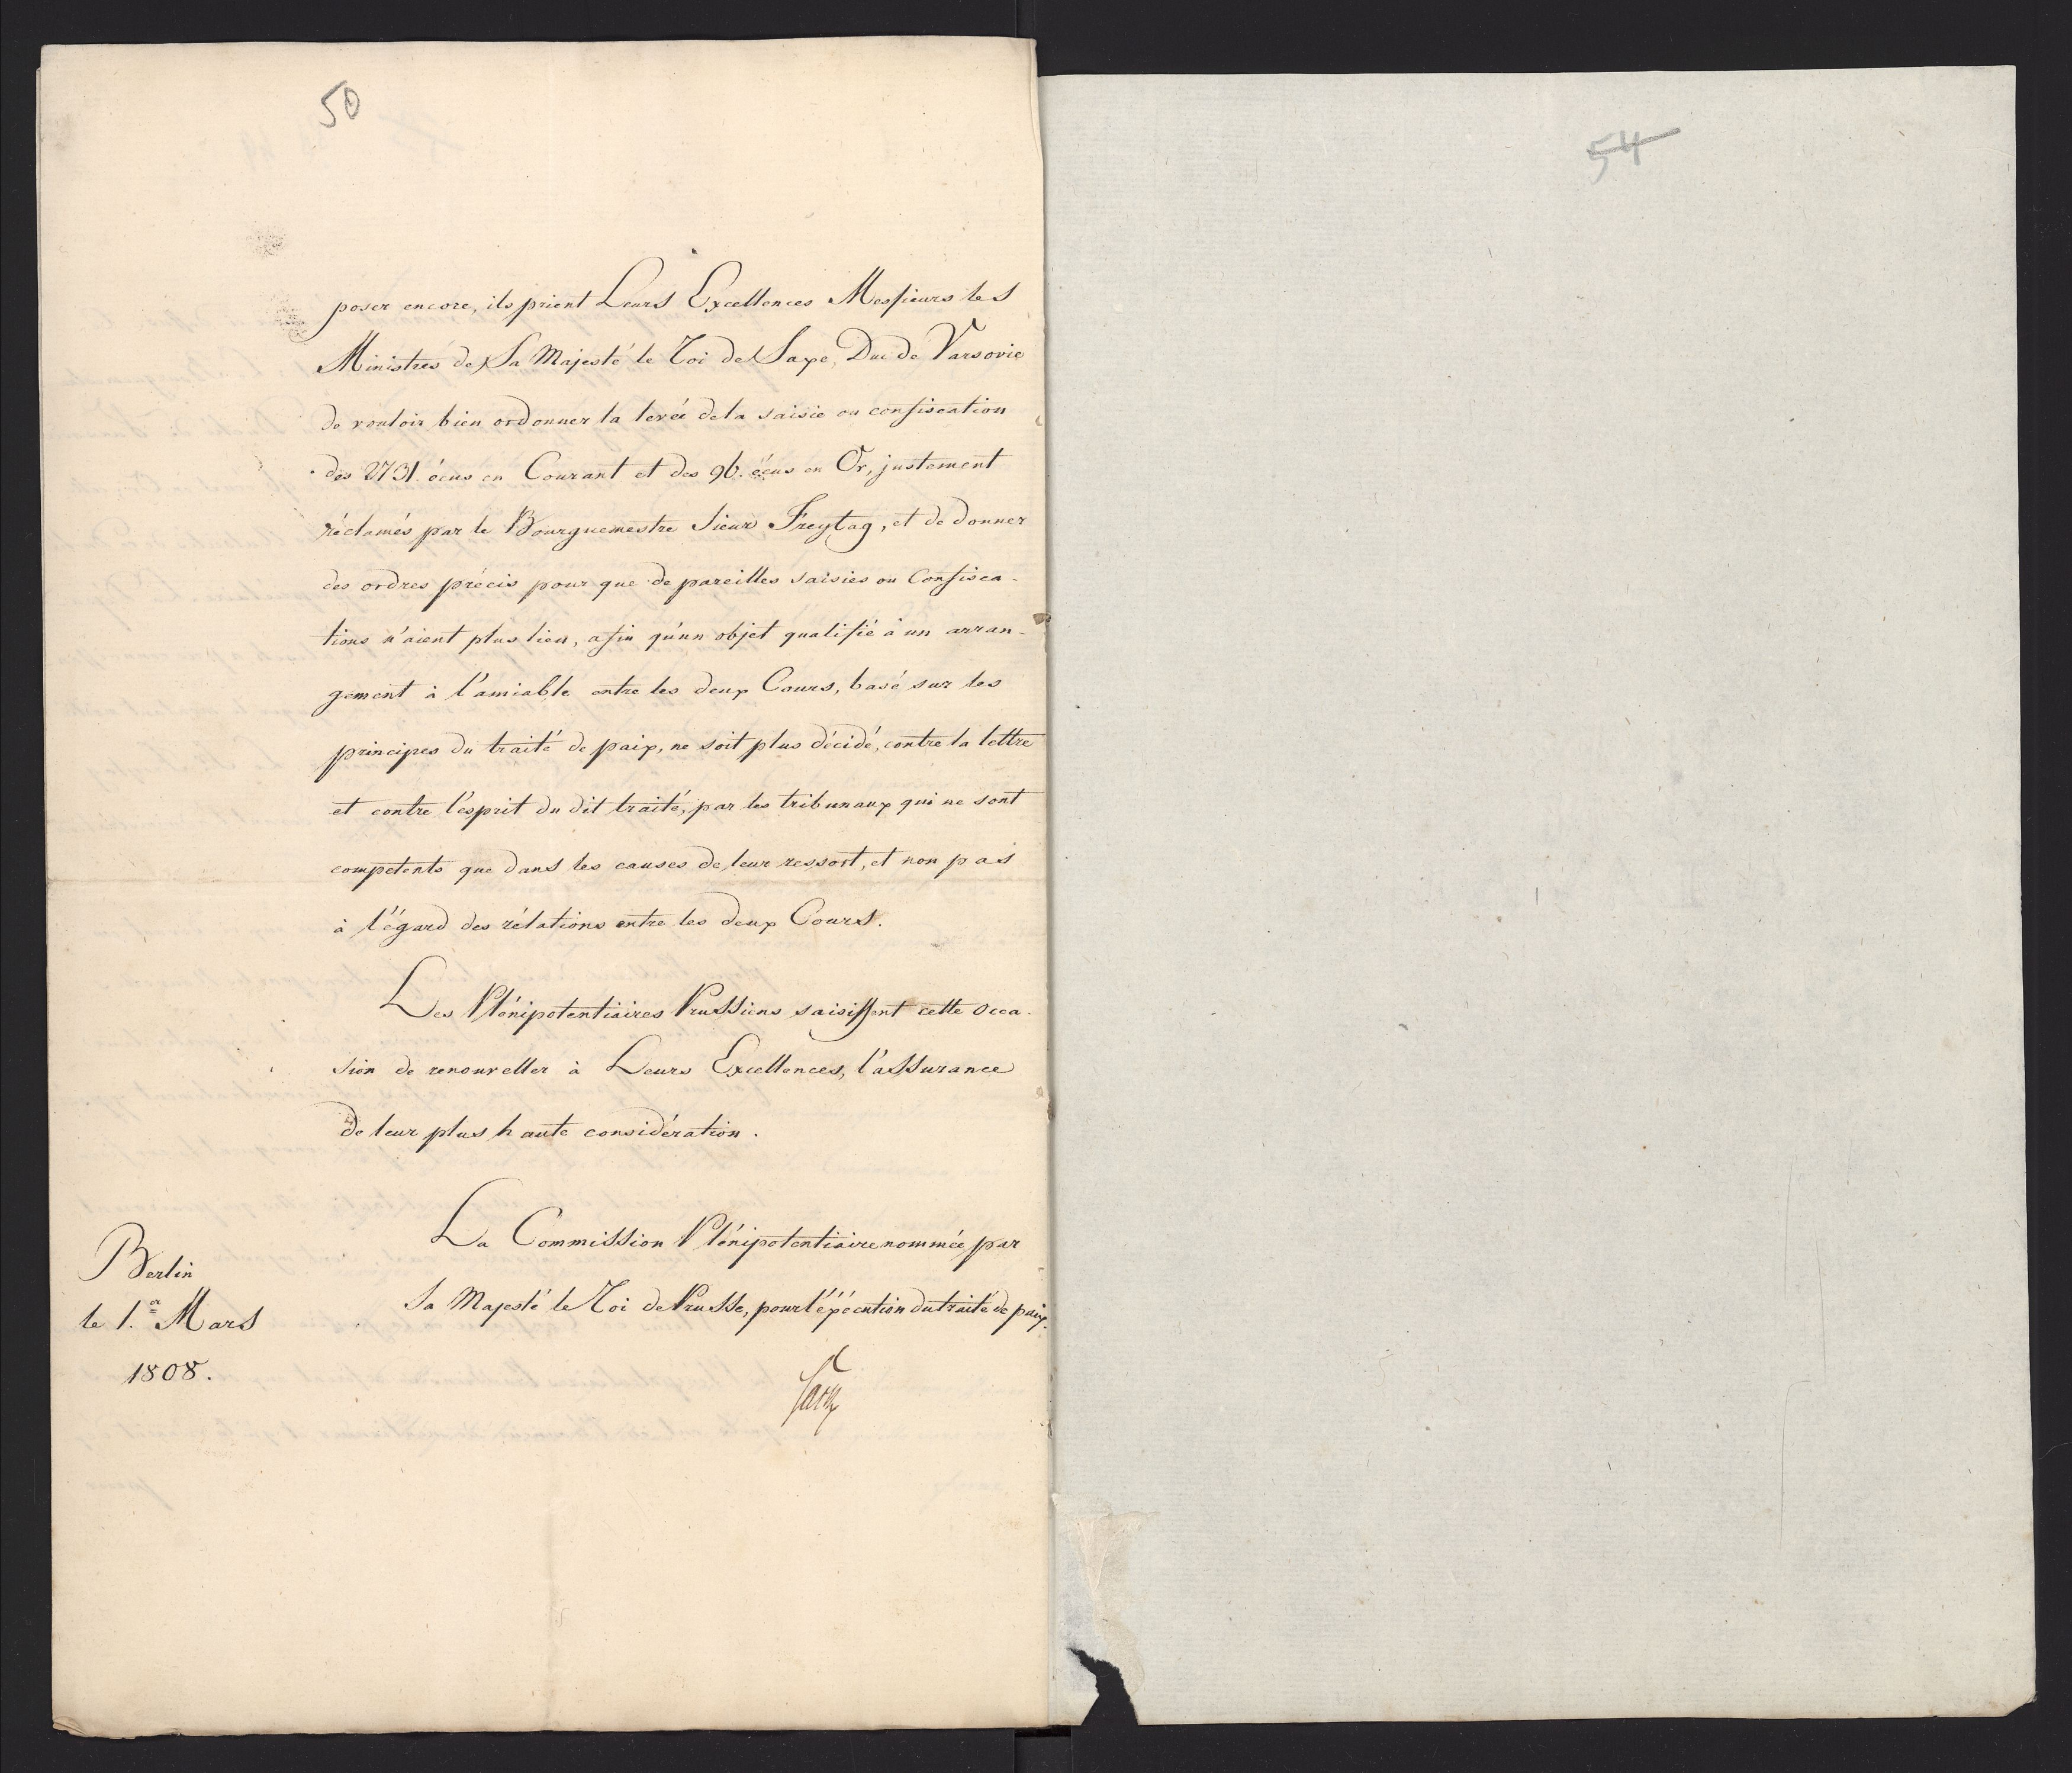 50
poser encore, ils prient Leurs Excellences Messieurs les
Ministres de Sa Majesté le Roi de Saxe, Duc de Varsovie
de vouloir bien ordonner la levée de la saisie ou confiscation
des 2731. écus en Courant et des 96. écus en Or, justement
réclamés par le Bourguemestre Sieur Freytag, et de donner
des ordres précis pour que de pareilles saisies ou Confisca-
tions n'aient plus lieu, afin qu'un objet qualifié à un arran-
gement à l'amiable entre les deux Cours, basé sur les
principes du traité de paix, ne soit plus décidé, contre la lettre
et contre l'esprit du dit traité, par les tribunaux qui ne sont
competents que dans les causes de leur ressort, et non pas
à l'égard des rélations entre les deux Cours.
Les Plénipotentiaires Prussiens saisissent cette occa-
sion de renouveller à Leurs Excellences, l'assurance
de leur plus haute considération.
La Commission Plénipotentiaire nommée par
Sa Majesté le Roi de Prusse, pour l'éxécution du traité de paix.
Berlin
le 1. Mars
1808.
54